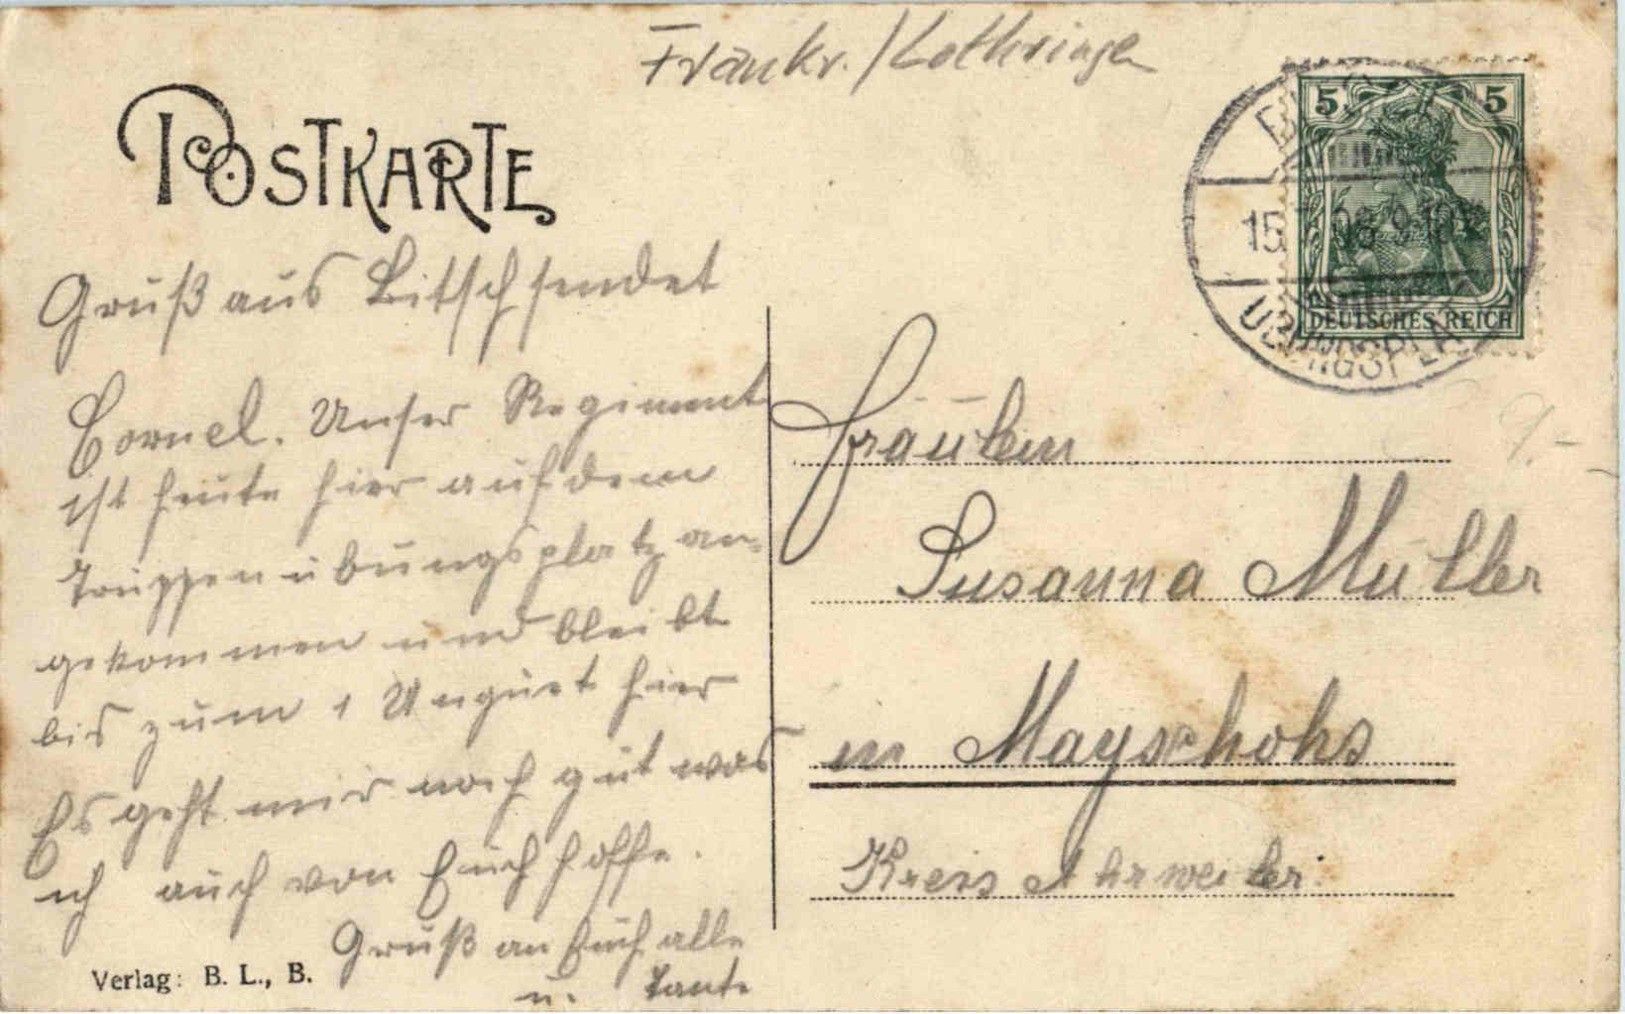 Frankr. / Lothringen
POSTKARTE
5 5
DEUTSCHES REICH
ÜBUNGSPLATZ
Gruß aus Bitsch sendet
Cornel. Unser Regiment
ist heute hier auf dem
Truppenübungsplatz an-
gekommen und bleibt
bis zum 1 August hier
Es geht mir noch gut was
ich auch von Euch hoffe.
Gruß an Euch alle
u. Tante
Verlag: B. L., B.
Fräulein
Susanna Müller
in Mayschoßs
Kreis Ahrweiler.